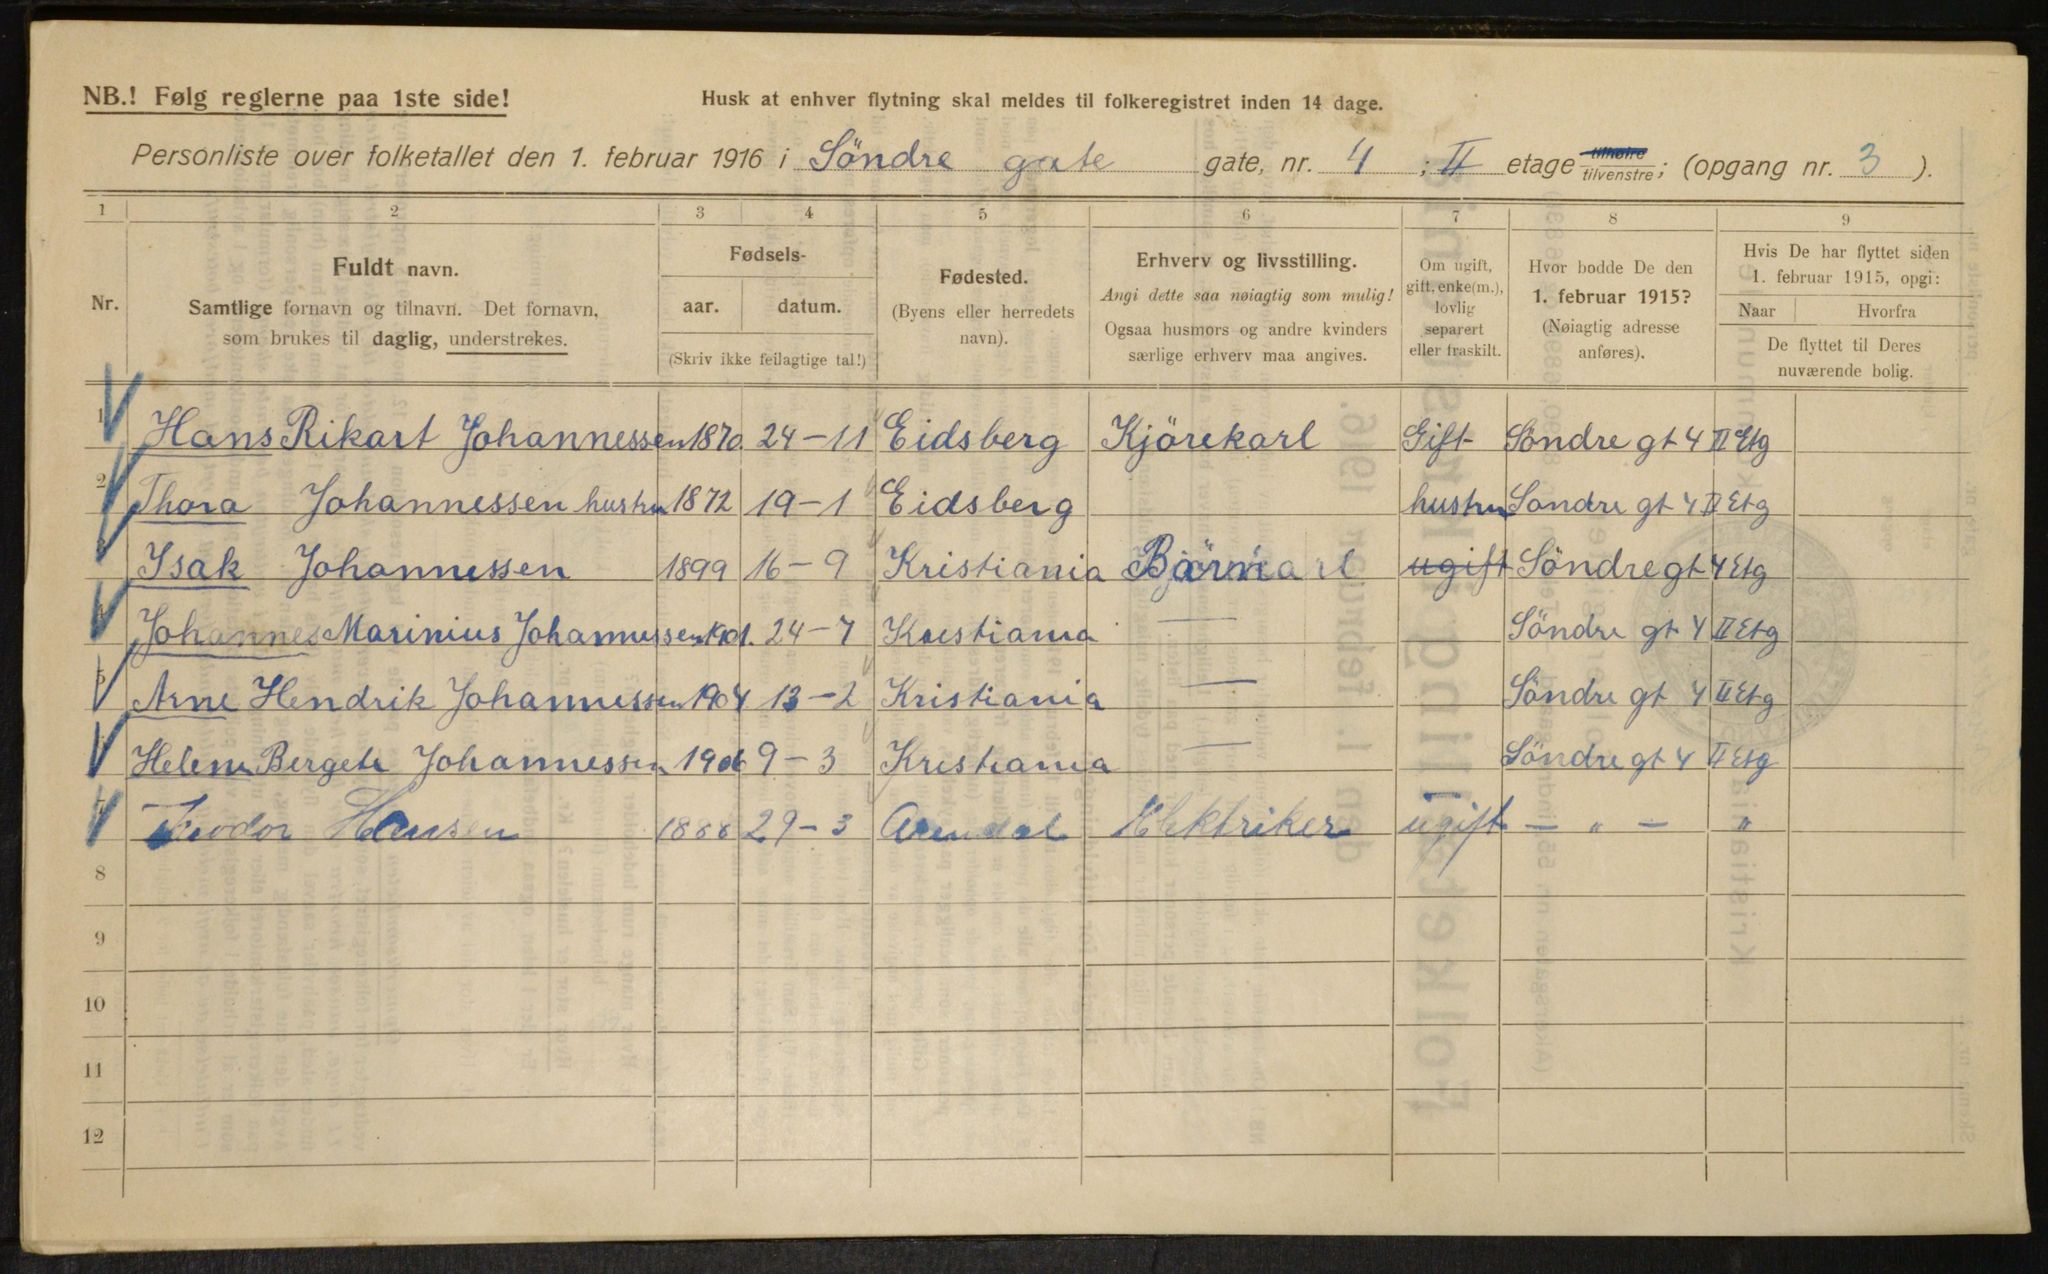 NB.! Følg reglerne paa 1ste side!
Husk at enhver flytning skal meldes til folkeregistret inden 14 dage.
Personliste over folketallet den 1. februar 1916 i Söndre gate gate, nr. 4 ; II etage tilhøire tilvenstre; (opgang nr. 3 ).
1 2 3 4 5 6 7 8 9
Nr.
Fuldt navn.
Samtlige fornavn og tilnavn. Det fornavn,
som brukes til daglig, understrekes.
Fødsels-
aar. datum.
(Skriv ikke feilagtige tal!)
Fødested.
(Byens eller herredets
navn).
Erhverv og livsstilling.
Angi dette saa nøiagtig som mulig!
Ogsaa husmors og andre kvinders
særlige erhverv maa angives.
Om ugift,
gift, enke(m.),
lovlig
separert
eller fraskilt.
Hvor bodde De den
1. februar 1915?
(Nøiagtig adresse
anføres).
Hvis De har flyttet siden
1. februar 1915, opgi:
Naar Hvorfra
De flyttet til Deres
nuværende bolig.
1 Hans Rikart Johannessen 1870 24-11 Eidsberg Kjörekarl Gift Söndre gt 4 II Etg
2 Thora Johannessen hustru 1872 19-1 Eidsberg hustru Söndre gt 4 II Etg
3 Isak Johannessen 1899 16-9 Kristiania ugift Söndre gt 4 Etg
4 Johannes Marinius Johannessen 1901. 24-7 Kristiania — Söndre gt 4 II Etg
5 Arne Hendrik Johannessen 1904 13-2 Kristiania — Söndre gt 4 II Etg
Helene Bergete Johannessen 1906 9-3 Kristiania — Söndre gt 4 II Etg
7 Teodor Hansen 1888 29-3 Arendal Elektriker ugift — " — "
8
9
10
11
12